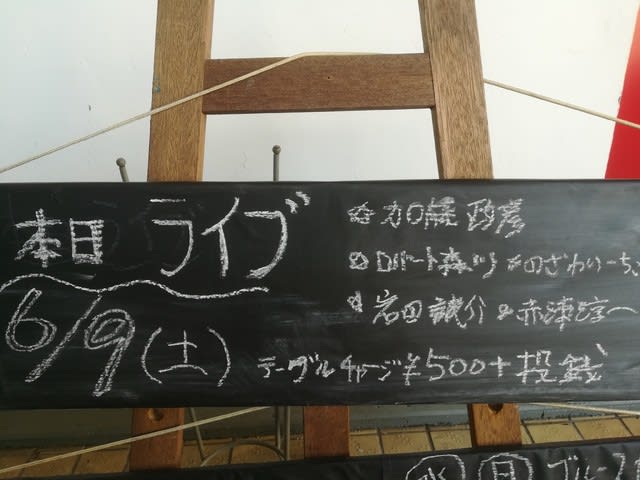 本日 ライブ
6/9(土)
☆加藤 政彦
☆ロバート森川 & のざわいーち
☆岩田 誠介 & 赤津淳一
テーブルチャージ¥500+投銭
水 日 ブルース